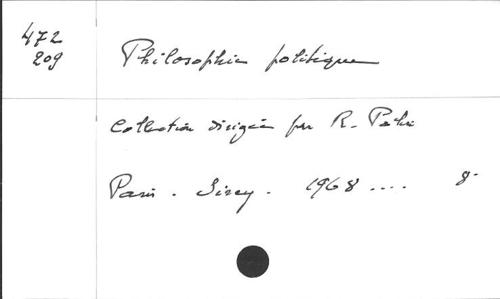 472
209
Philosophie politique
Collection dirigée par R.
Paris. Sirey. 1968.... 8.